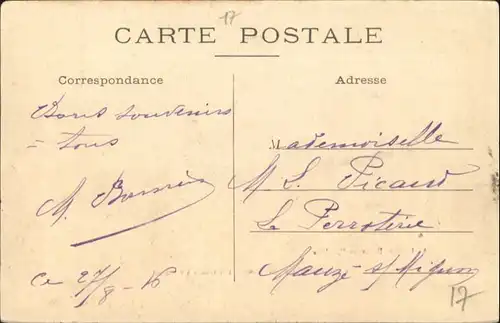 17
CARTE POSTALE
Correspondance
Bons souvenirs
= tous
M.
Ce 27/8 - 16
Adresse
Mademoiselle
M L Picaud
La Perroterie
Mauzé s/ Mignon
17